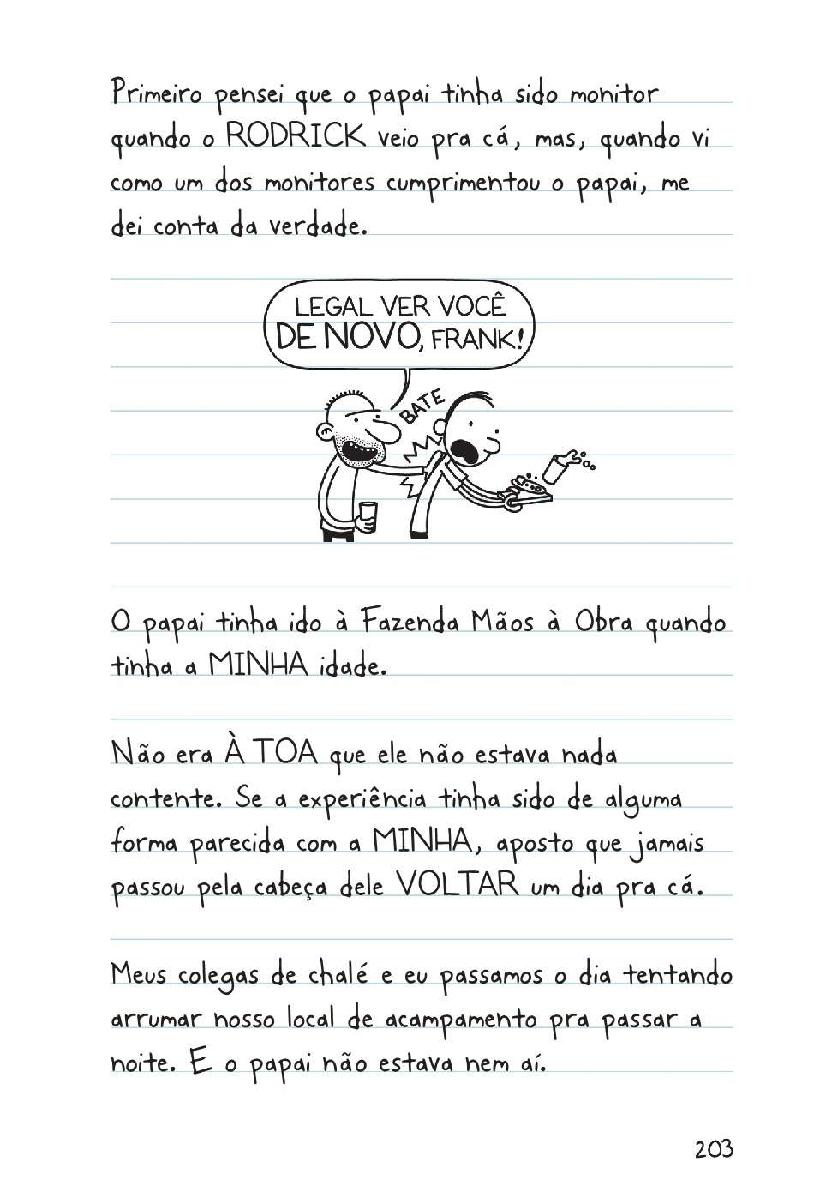 Primeiro pensei que o papai tinha sido monitor
quando o RODRICK veio pra cá, mas, quando vi
como um dos monitores cumprimentou o papai, me
dei conta da verdade.
LEGAL VER VOCÊ
DE NOVO, FRANK!
BATE
O papai tinha ido à Fazenda Mãos à Obra quando
tinha a MINHA idade.
Não era À TOA que ele não estava nada
contente. Se a experiência tinha sido de alguma
forma parecida com a MINHA, aposto que jamais
passou pela cabeça dele VOLTAR um dia pra cá.
Meus colegas de chalé e eu passamos o dia tentando
arrumar nosso local de acampamento pra passar a
noite. E o papai não estava nem aí.
203